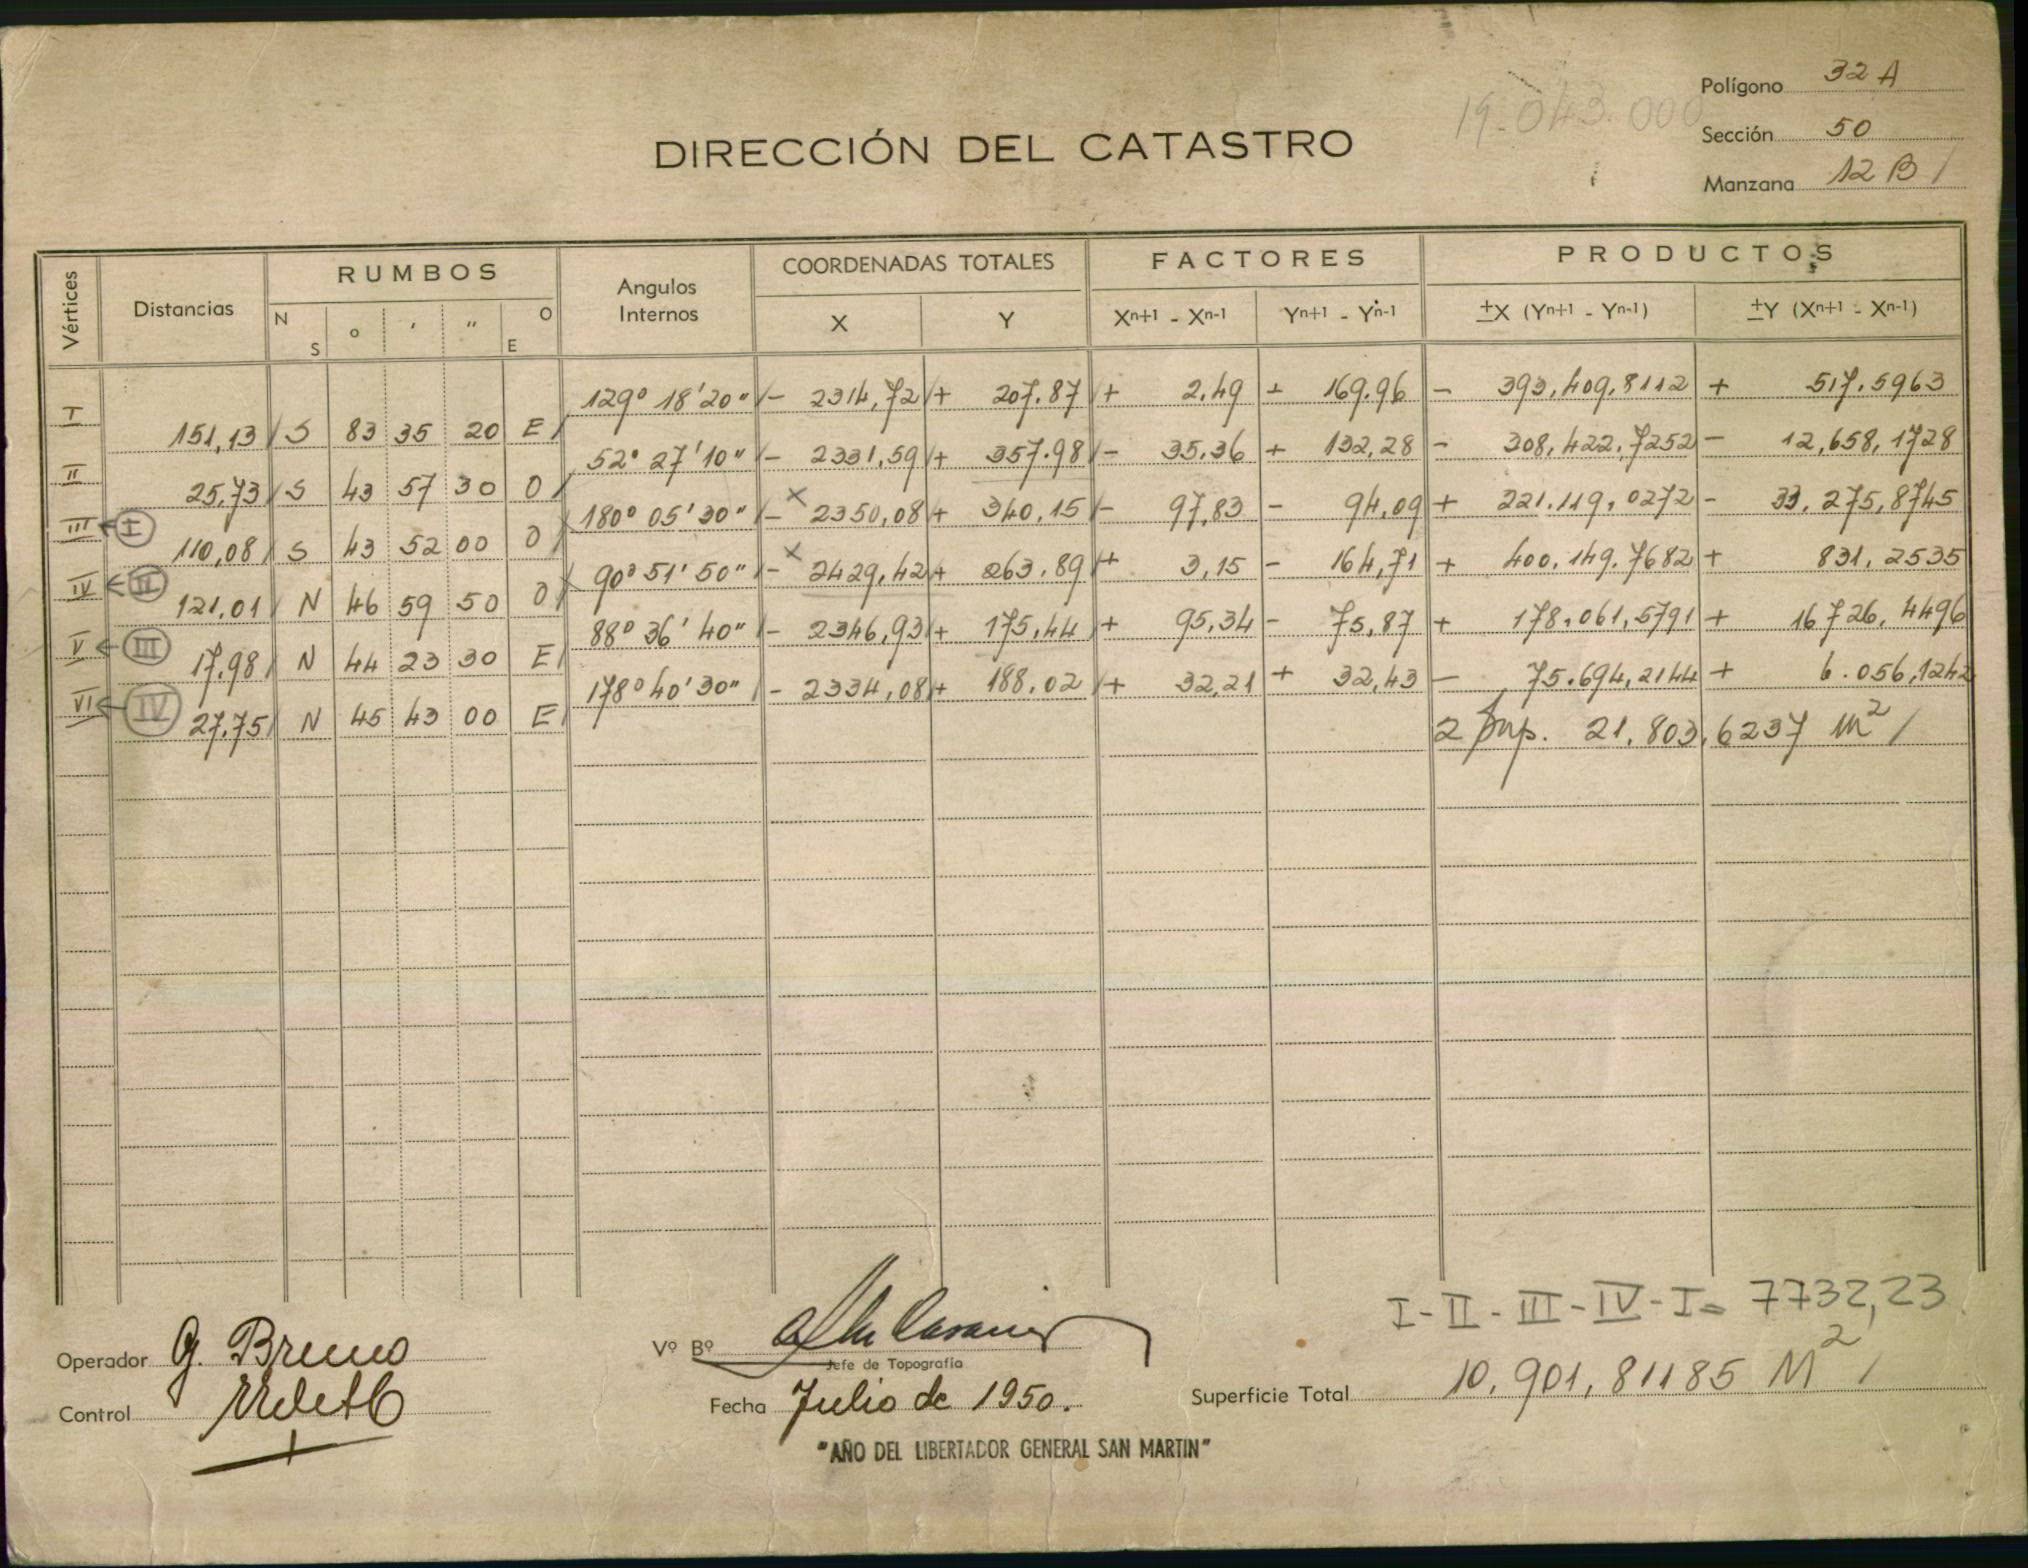 Polígono 32 A
19.043.000
Sección 50
DIRECCIÓN DEL CATASTRO
Manzana 12 B /
Vértices Distancias RUMBOS Angulos Internos COORDENADAS TOTALES FACTORES PRODUCTOS
N S ° ' " O E X Y Xn+1 - Xn-1 Yn+1 - Yn-1 ±X (Yn+1 - Yn-1) ±Y (Xn+1 - Xn-1)
I 129° 18' 20" / - 2314,72 / + 207.87 / + 2,49 + 169.96 - 393,409,8112 + 517.5963
151,13 / S 83 35 20 E /
II 52° 27' 10" / - 2331,59 / + 357.98 / - 35,36 + 132,28 - 308,422,7252 - 12,658,1728
25,73 / S 43 57 30 O /
III ← I 180° 05' 30" / - x 2350,08 / + 340,15 / - 97,83 - 94,09 + 221.119,0272 - 33,275,8745
110,08 / S 43 52 00 O /
IV ← II 90° 51' 50" / - x 2429,42 + 263.89 / + 3,15 - 164,71 + 400,149.7682 + 831,2535
121,01 / N 46 59 50 O /
V ← III 88° 36' 40" / - 2346,93 / + 175,44 / + 95,34 - 75,87 + 178,061,5791 + 16726,4496
17.98 / N 44 23 30 E /
VI ← IV 178° 40' 30" / - 2334,08 / + 188.02 / + 32,21 + 32,43 - 75.694,2144 + 6.056,1242
27,75 / N 45 43 00 E /
2 Sup. 21,803,6237 m2 /
I - II - III - IV - I = 7732,23
Operador G. Bruno
Vº Bº
Jefe de Topografía
Control
Fecha Julio de 1950.
Superficie Total 10,901,81185 M2 /
"AÑO DEL LIBERTADOR GENERAL SAN MARTIN"